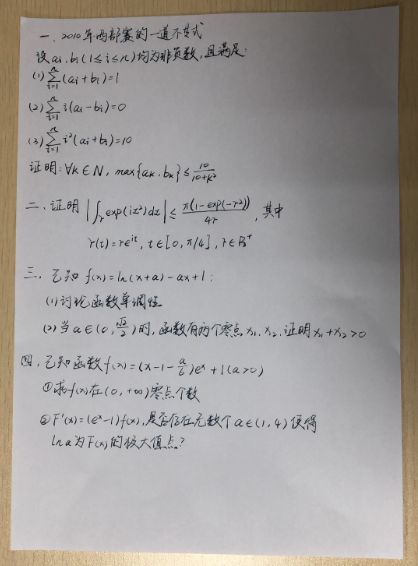 一、2010年西部赛的一道不等式
设ai,bi(1≤i≤n)均为非负数,且满足:
(1) ∑_{i=1}^{n}(ai+bi)=1
(2) ∑_{i=1}^{n} i(ai-bi)=0
(3) ∑_{i=1}^{n} i²(ai+bi)=10
证明:∀k∈N, max{ak,bk}≤10/(10+k²)
二、证明 |∫_r exp(iz²)dz|≤π(1-exp(-r²))/4r ,其中
r(t)=re^{it}, t∈[0,π/4], r∈R⁺
三、已知 f(x)=ln(x+a)-ax+1:
(1)讨论函数单调性
(2)当a∈(0,√2/2)时,函数有两个零点x₁,x₂,证明x₁+x₂>0
四、已知函数f(x)=(x-1-a/2)eˣ+1(a>0)
①求f(x)在(0,+∞)零点个数
②F'(x)=(eˣ-1)f(x),是否存在无数个a∈(1,4)使得
lna为F(x)的极大值点?